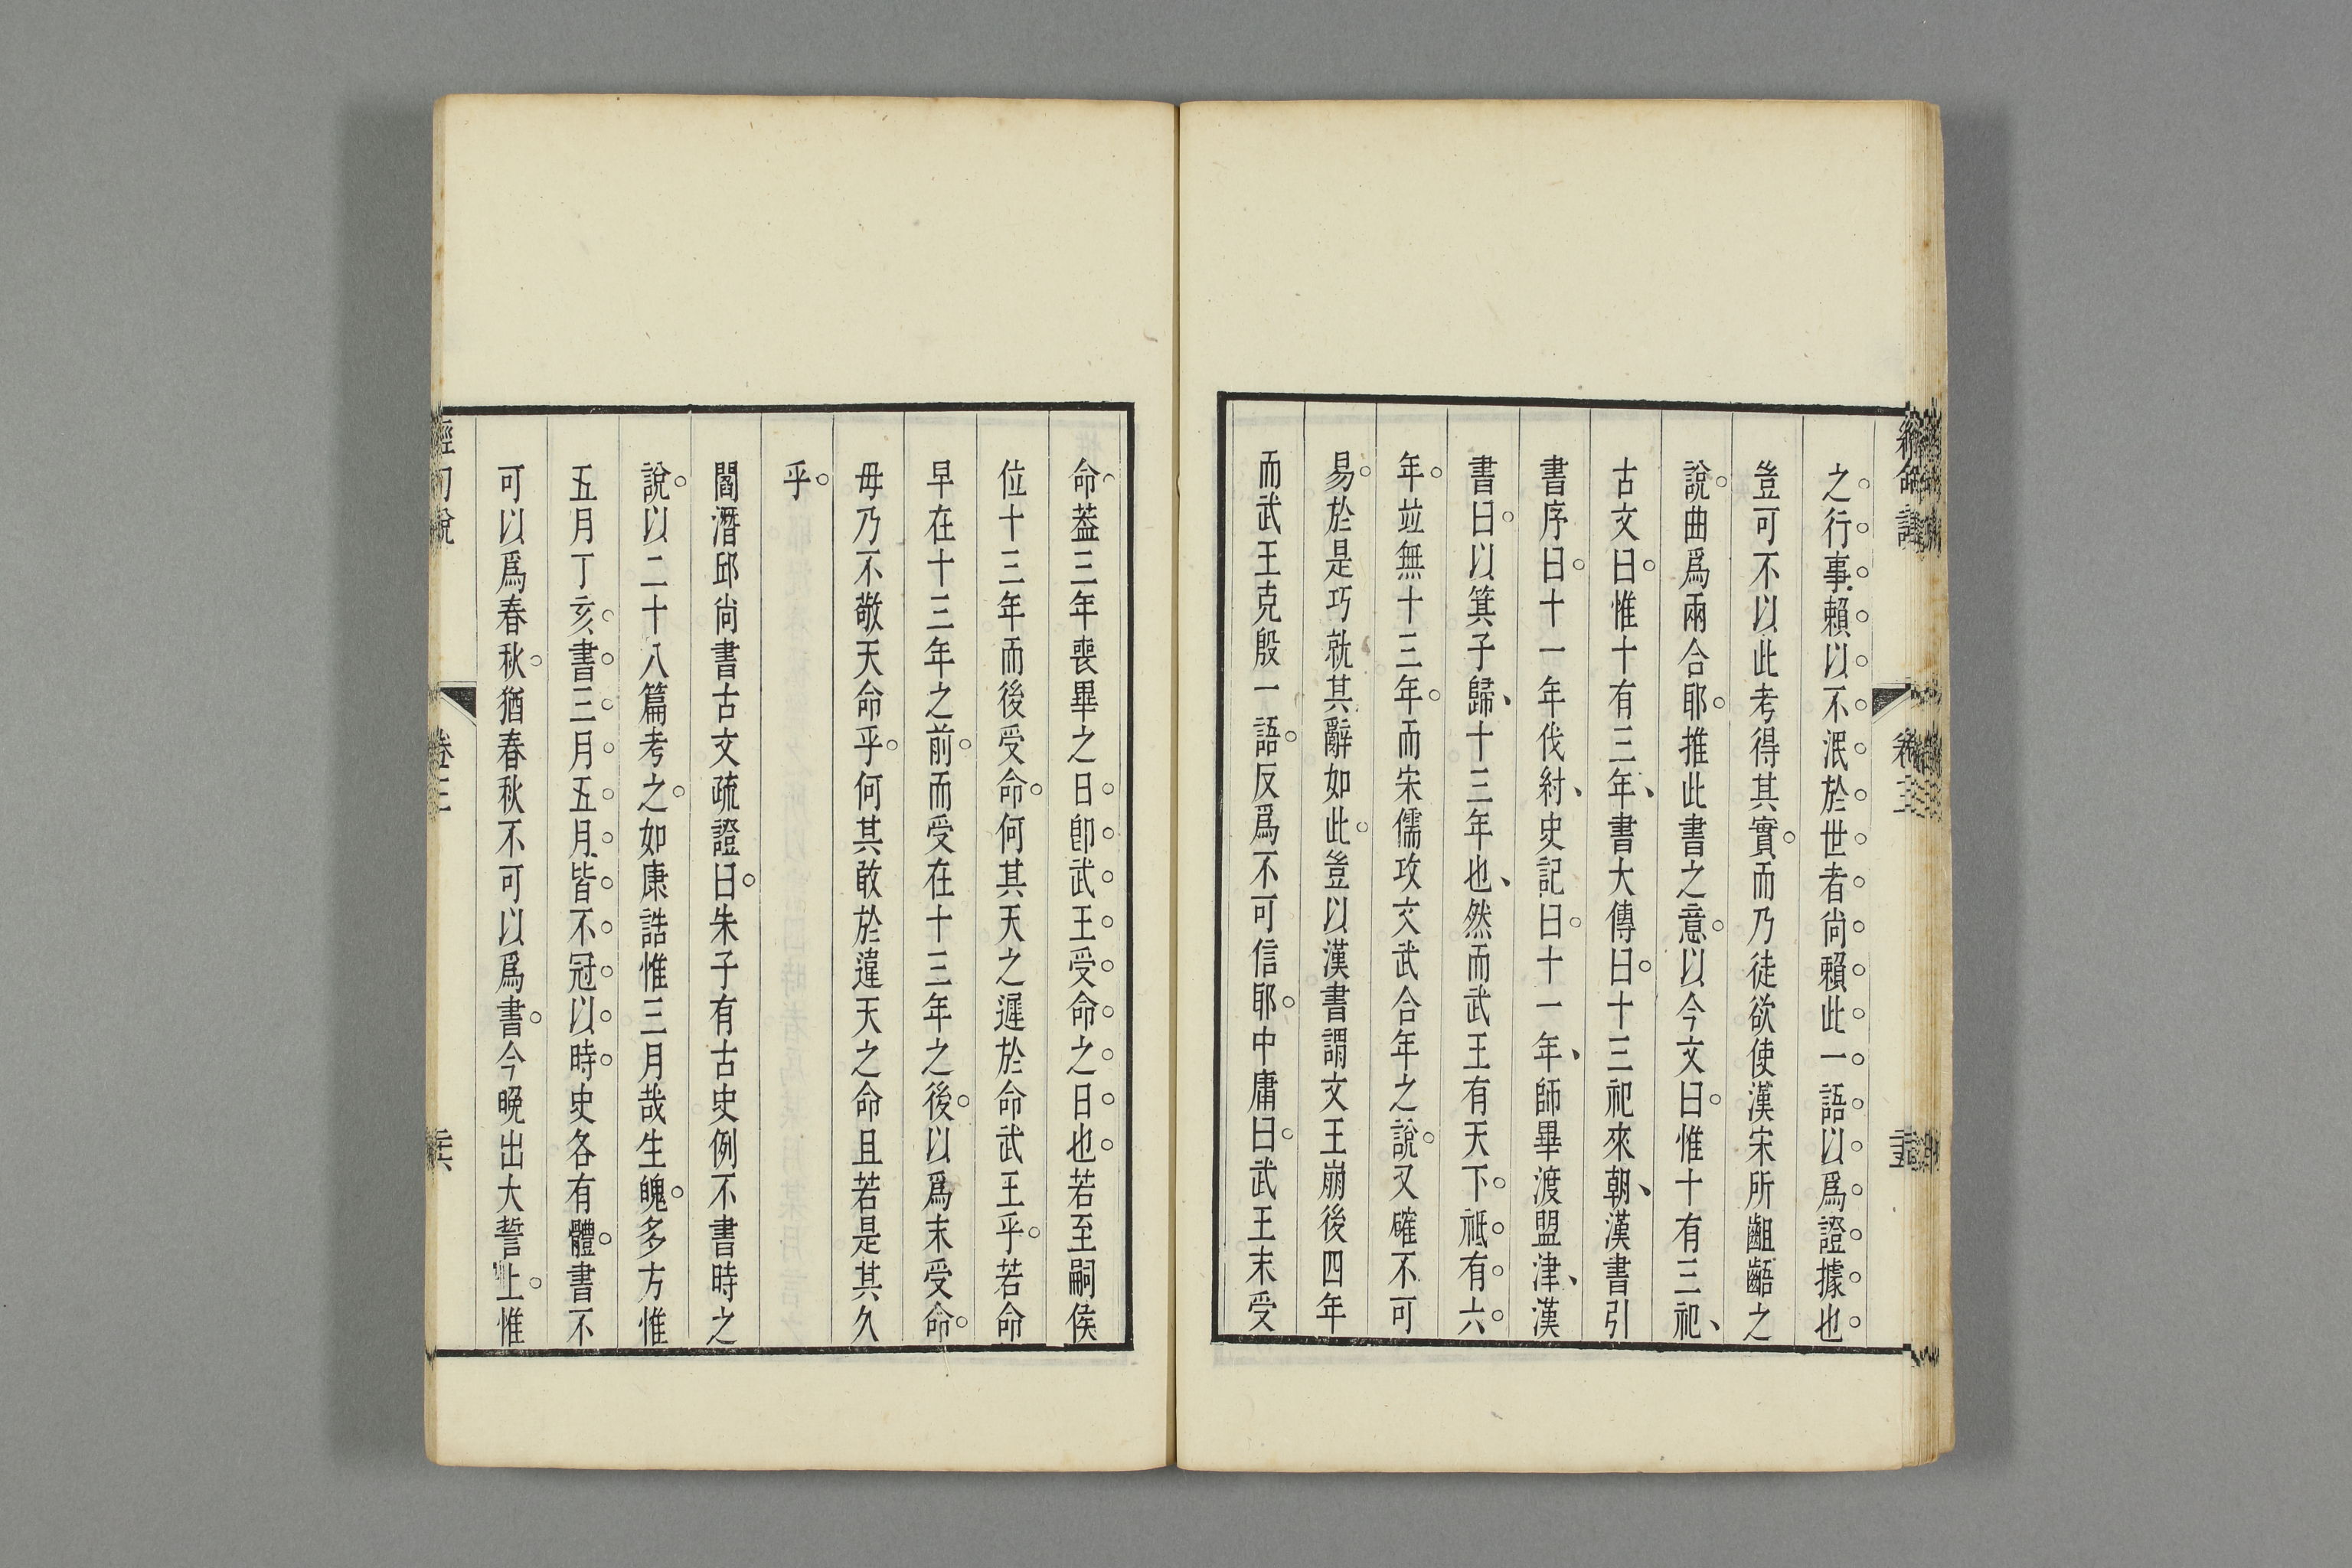 之行事賴以不泯於世者尙賴此一語以爲證據也
豈可不以此考得其實而乃徒欲使漢宋所齟齬之
說曲爲兩合耶推此書之意以今文曰惟十有三祀
古文曰惟十有三年書大傳曰十三祀來朝漢書引
書序曰十一年伐紂史記曰十一年師畢渡盟津漢
書曰以箕子歸十三年也然而武王有天下祗有六
年竝無十三年而宋儒攻文武合年之說又確不可
易於是巧就其辭如此豈以漢書謂文王崩後四年
而武王克殷一語反爲不可信耶中庸曰武王末受
命葢三年喪畢之日卽武王受命之日也若至嗣侯
位十三年而後受命何其天之遲於命武王乎若命
早在十三年之前而受在十三年之後以爲末受命
毋乃不敬天命乎何其敢於違天之命且若是其久
乎
閻潛邱尙書古文疏證曰朱子有古史例不書時之
說以二十八篇考之如康誥惟三月哉生魄多方惟
五月丁亥書三月五月皆不冠以時史各有體書不
可以爲春秋猶春秋不可以爲書今晚出大誓上惟
卷三